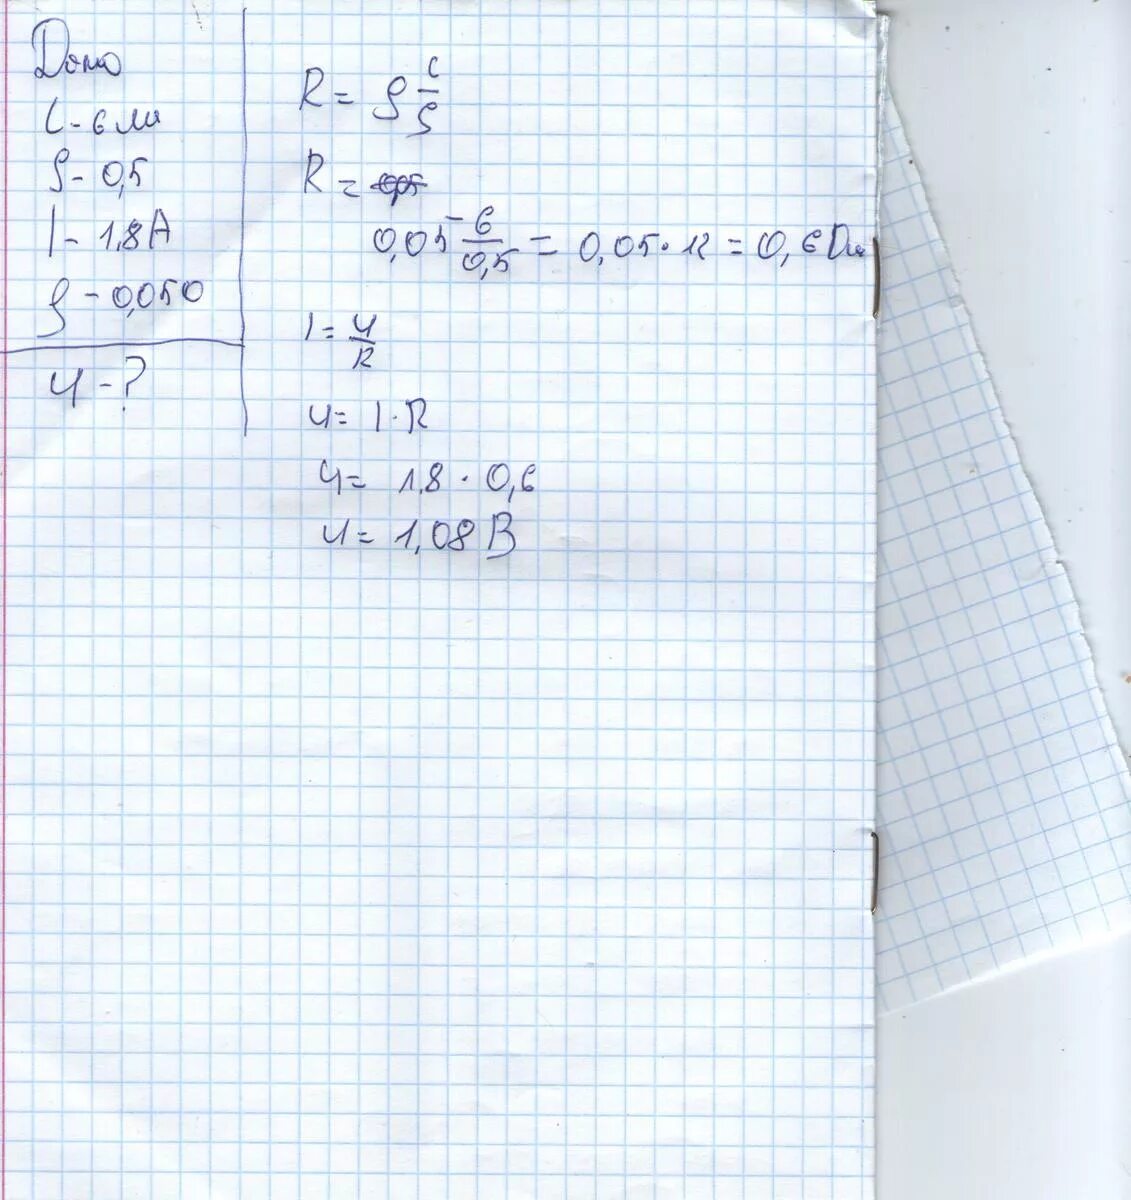 Дано
l - 6 м
S - 0,5
I - 1,8 А
ρ - 0,050
U - ?
R = ρ l/S
R =
0,05 · 6/0,5 = 0,05 · 12 = 0,6 Ом
I = U/R
U = I · R
U = 1,8 · 0,6
U = 1,08 В